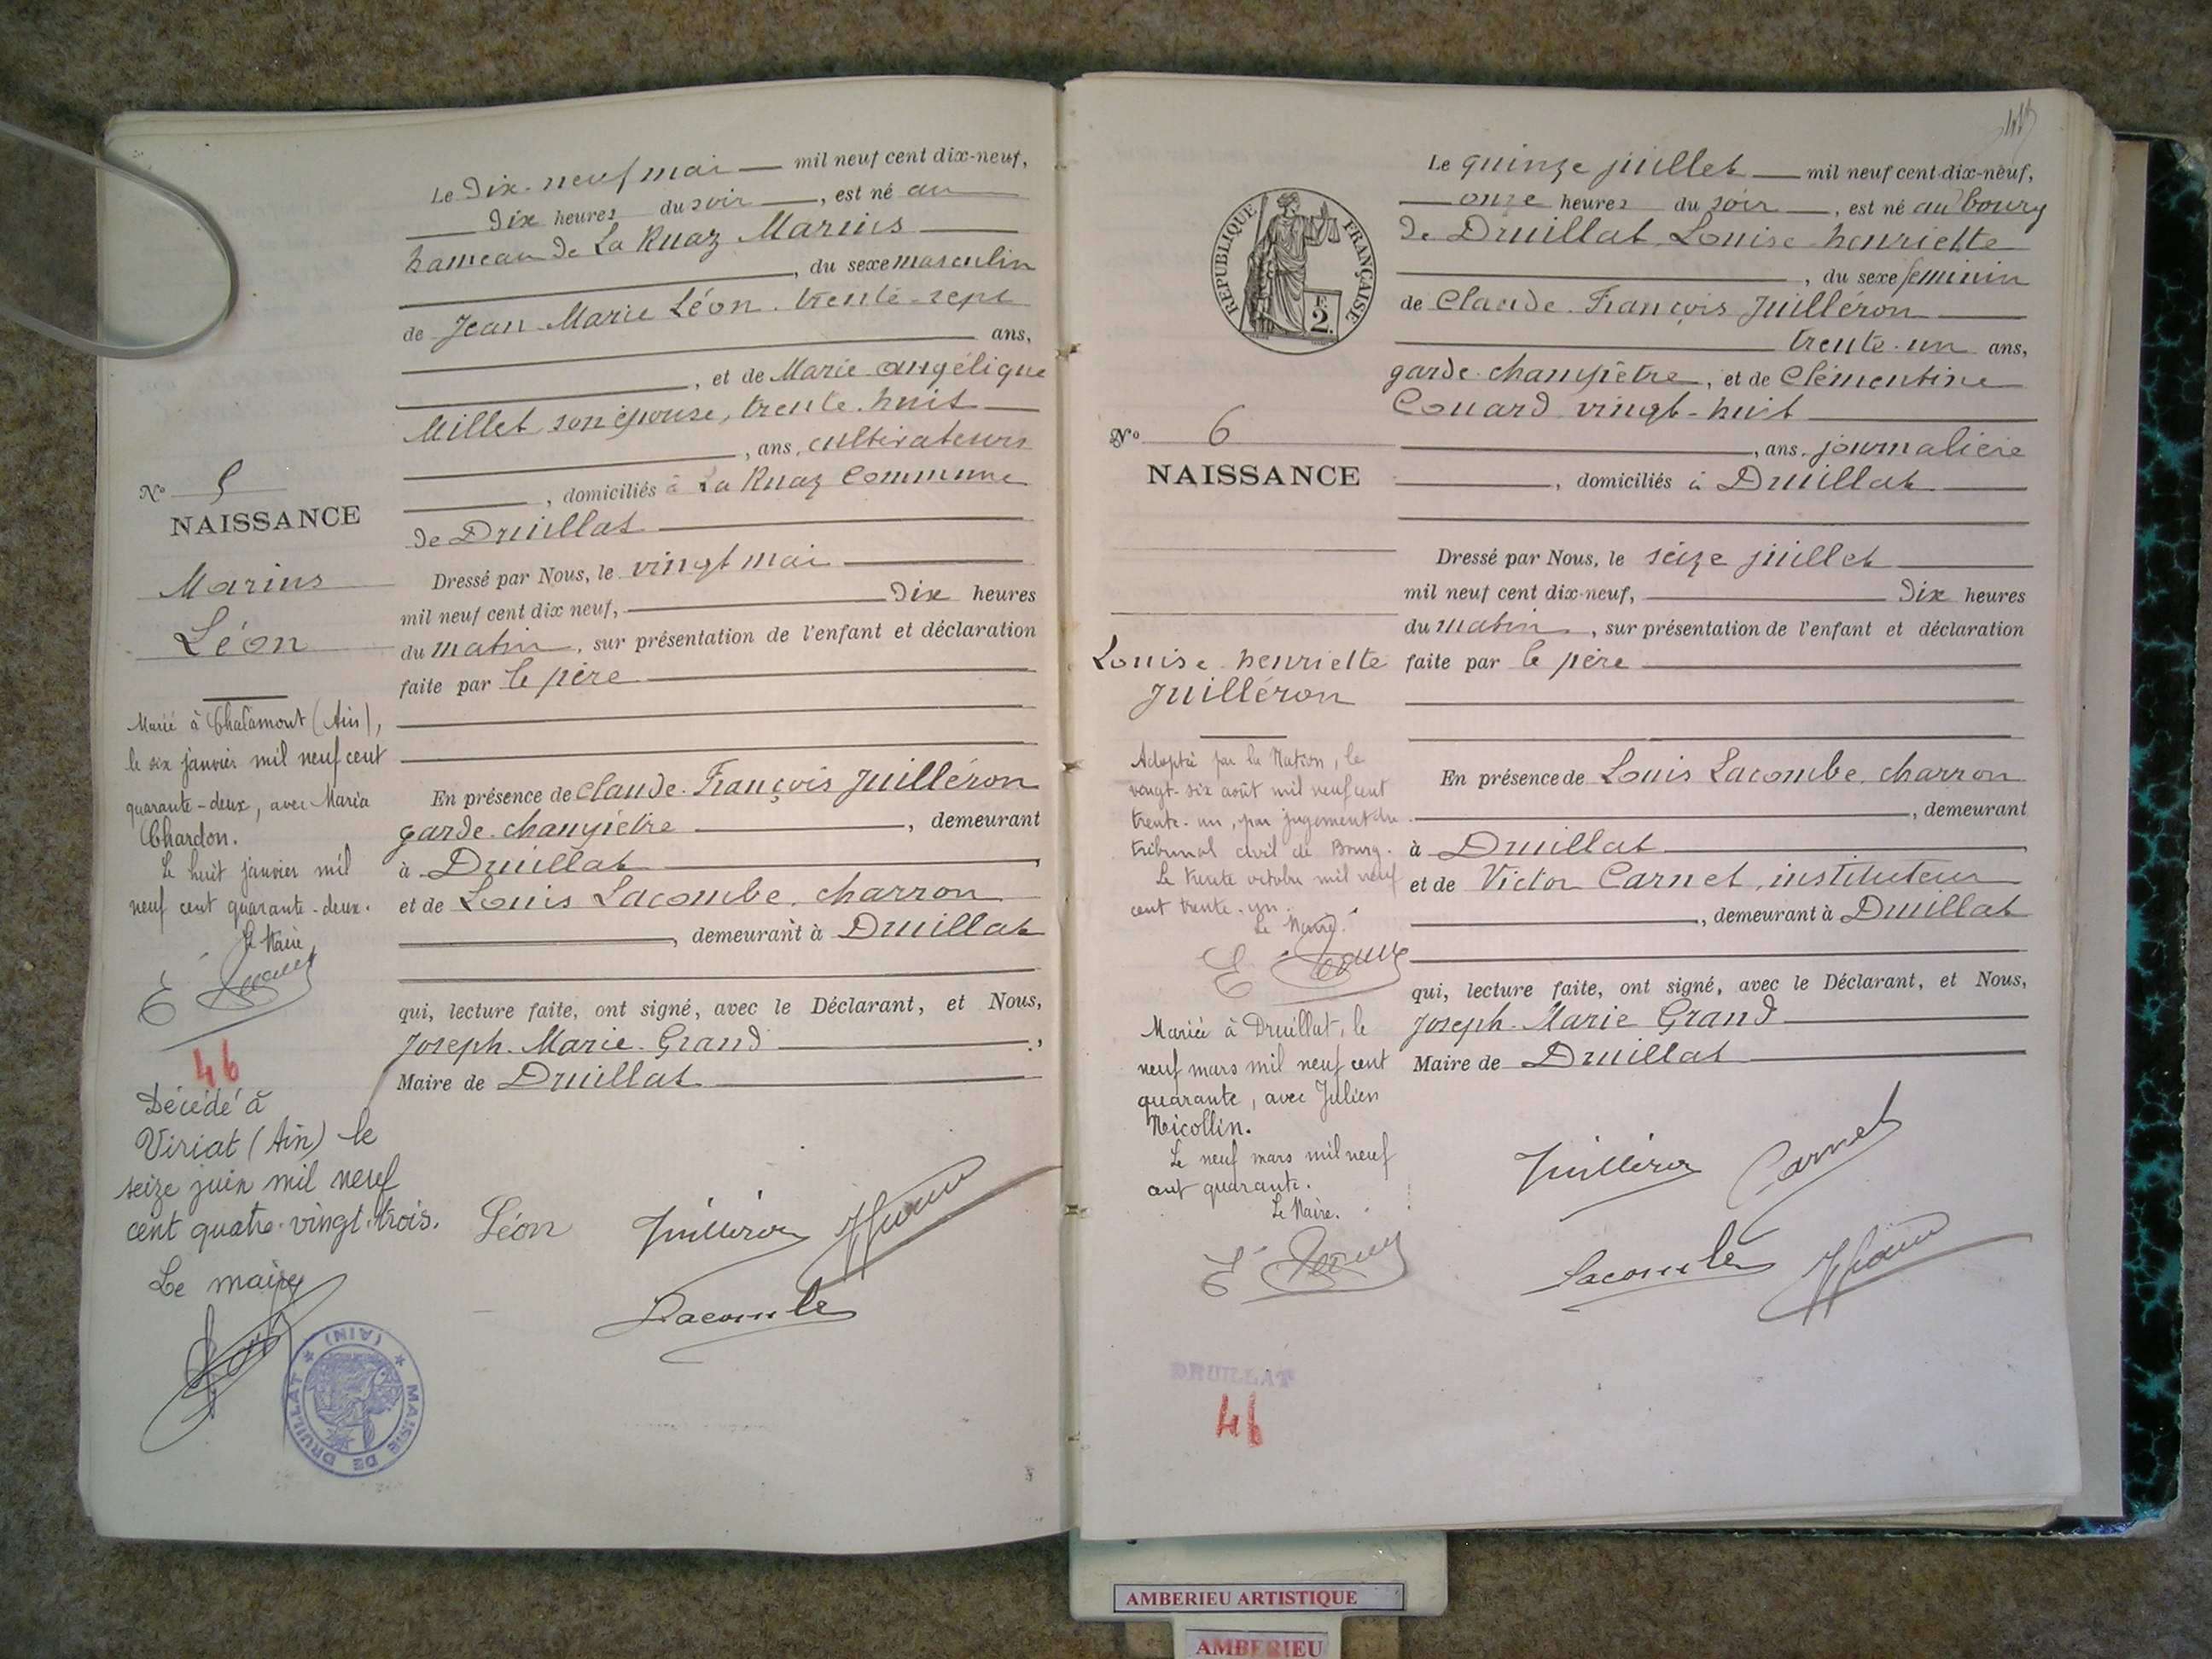 Le Dix-neuf mai mil neuf cent dix-neuf,
Dix heures du soir, est né au
hameau de La Ruaz Marius
, du sexe masculin
de Jean Marie Léon. trente-sept
ans,
, et de Marie angélique
Millet son épouse, trente-huit
, ans, cultivateurs
, domiciliés à La Ruaz Commune
de Druillat
Dressé par Nous, le vingt mai
mil neuf cent dix neuf, Dix heures
du matin, sur présentation de l'enfant et déclaration
faite par le père
En présence de Claude-François Juilléron
garde-champêtre, demeurant
à Druillat
et de Louis Lacombe, charron
, demeurant à Druillat
qui, lecture faite, ont signé, avec le Déclarant, et Nous,
Joseph-Marie-Grand,
Maire de Druillat
Léon Juilléron
Lacombe
No 5
NAISSANCE
Marius
Léon
Marié à Chalamont (Ain),
le six janvier mil neuf cent
quarante-deux, avec Maria
Chardon.
Le huit janvier mil
neuf cent quarante-deux.
Le Maire
46
Décédé à
Viriat (Ain) le
seize juin mil neuf
cent quatre-vingt-trois.
Le maire
MAIRIE DE DRUILLAT
(AIN)
Le quinze juillet mil neuf cent-dix-neuf,
onze heures du soir, est né au bourg
de Druillat Louise-henriette
, du sexe feminin
de Claude-François Juilléron
trente-un ans,
garde-champêtre, et de Clémentine
Couard vingt-huit
, ans, journalière
, domiciliés à Druillat
Dressé par Nous, le seize juillet
mil neuf cent dix-neuf, Dix heures
du matin, sur présentation de l'enfant et déclaration
faite par le père
En présence de Louis Lacombe, charron
, demeurant
à Druillat
et de Victor Carnet, instituteur
, demeurant à Druillat
qui, lecture faite, ont signé, avec le Déclarant, et Nous,
Joseph-Marie Grand
Maire de Druillat
Juilléron Carnet
Lacombe
RÉPUBLIQUE FRANÇAISE
2
F.
No 6
NAISSANCE
Louise-henriette
Juilléron
Adoptée par la Nation, le
vingt-six août mil neuf cent
trente-un, par jugement du
tribunal civil de Bourg.
Le trente octobre mil neuf
cent trente-un.
Le Maire.
Mariée à Druillat, le
neuf mars mil neuf cent
quarante, avec Julien
Nicollin.
Le neuf mars mil neuf
cent quarante.
Le Maire.
DRUILLAT
46
AMBERIEU ARTISTIQUE
AMBERIEU